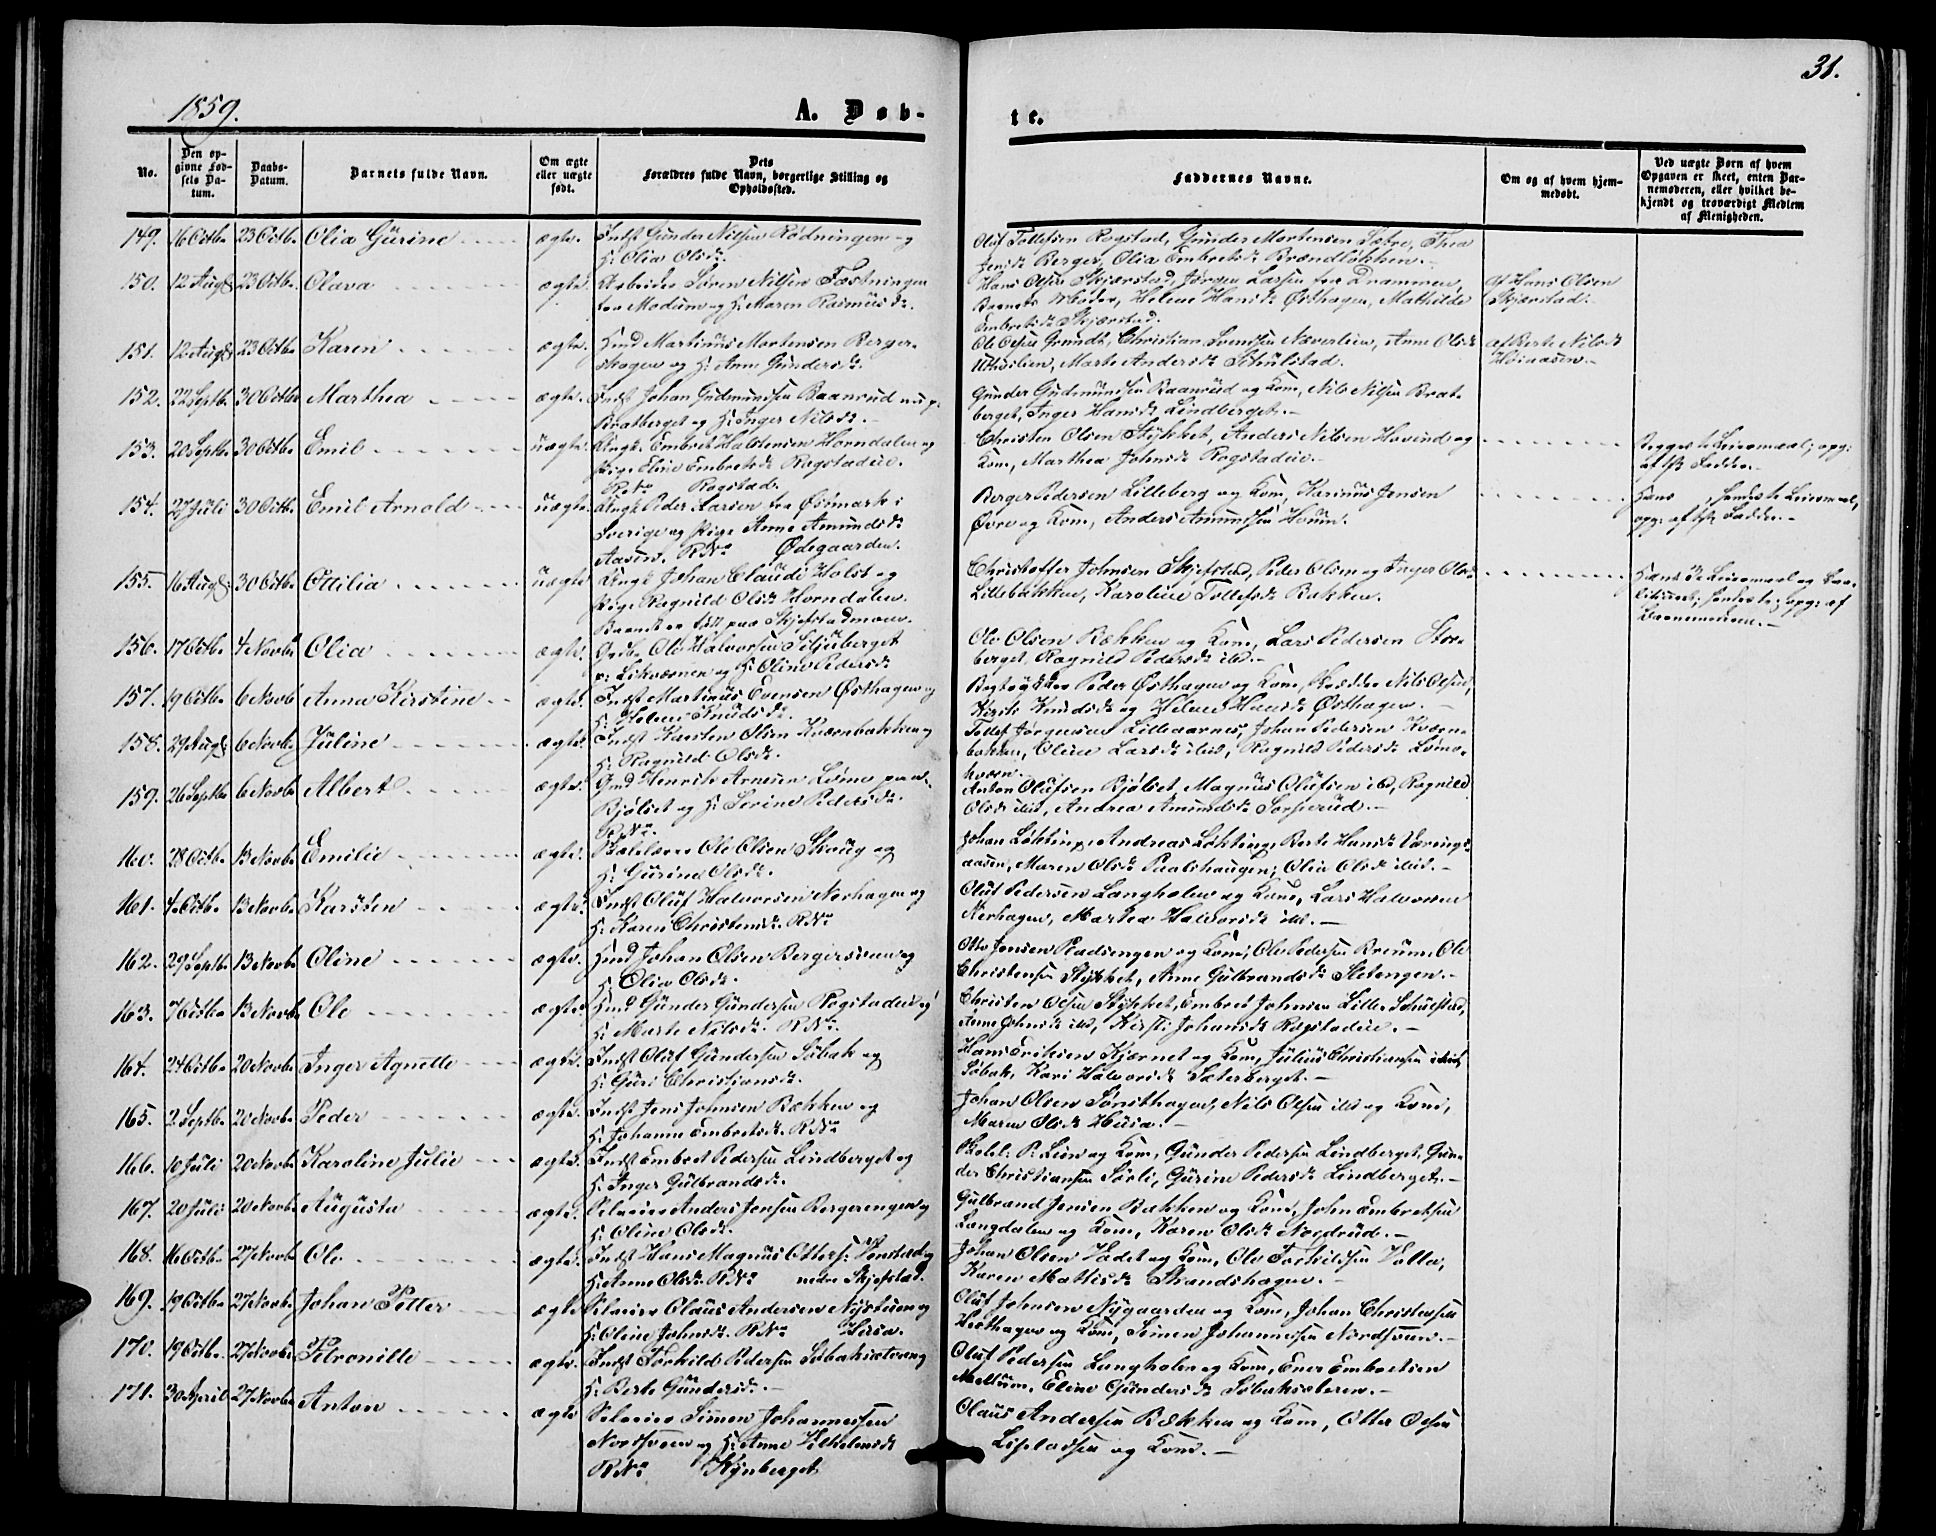 1859.
A. Døb-
te.
31.
No.
Den op-
givne Fød-
sels Da-
tum.
Daabs-
Datum.
Barnets fulde Navn.
Om ægte
eller uægte
født.
Dets
Forældres fulde Navn, borgerlige Stilling og
Opholdssted.
Faddernes Navne.
Om og af hvem hjem-
medøbt.
Ved uægte Børn af hvem
Opgaven er skeet, enten Bar-
nemoderen, eller hvilket be-
kjendt og troværdigt Medlem
af Menigheden.
149. 16 Octb. 23 Octb. Olia Gürine ægte. Indst Gunder Nilsen Rødningen og
H: Olia Olsd.
Oluf Tollefsen Rogstad, Gunder Mortensen Sætre, Thea
Jensd. Berger, Olia Embretsd. Brændløkken.
150. 12 Augs. 23 Octb. Olava ægte. Arbeider Søren Nilsen Fæstningen
fra Modum og H: Maren Rasmusd.
Hans Olsen Skjærstad, Jørgen Larsen fra Drammen,
Barnets Moder, Helene Hansd. Østhagen, Mathilde
Embretsd. Skjærstad.
af Hans Olsen
Skjærstad.
151. 12 Augs. 23 Octb. Karen ægte. Hmd Martinus Mortensen Berger-
skogen og H: Anne Gundersd.
Ole Olsen Grundt, Christian Svendsen Næverlien, Anne Olsd.
Marte Andersd. Schulstad.
af Berte Nilsd.
Høiaasen.
152. 22 Septb. 30 Octb. Marthea ægte. Indst Johan Gudmundsen Baanrud
Bratberget og H: Inger Nilsd.
Gunder Gudmundsen Baanrud og Kone, Nils Nilsen Brat-
berget, Inger Hansd. Lindberget.
153. 20 Septb. 30 Octb. Emil uægte. Ungk. Embret Halstensen Horndalen og
Pige Eline Embretsd. Rogstadeie.
Rogstad.
Christen Olsen Stykket, Anders Nilsen Hovind og
Kone, Marthea Johnsd. Rogstadeie.
Begges 1ste Leiermaal; opg:
af 1ste Fadder.
154. 27 Juli 30 Octb. Emil Arnold uægte. Ungk. Peder Larsen fra Østmark i
Sverige og Pige Anne Amundsd.
Aasen. Ødegaarden.
Berger Pedersen Lilleberg og Kone, Karinus Jensen
Øvre og Kone, Anders Amundsen Houm.
Hans, hendes 1ste Leiermaal,
opg: af 1ste Fadder.
155. 16 Augs. 30 Octb. Ottilia uægte. Ungk. Johan Claudi Holst og
Pige Ragnild Olsd. Horndalen.
Barnet er født paa Skjefstadmoen.
Christoffer Johnsen Skjefstad, Peder Olsen og Inger Olsd.
Lillebakken, Karoline Tollefsd. Bakken.
Barnemoderen.
156. 17 Octb. 4 Novb. Olia ægte. Ole Halvorsen Siljuberget
og H: Oline Pedersd.
Ole Olsen Bækken og Kone, Lars Pedersen Stor-
berget, Ragnild Pedersd. ibd.
157. 19 Octb. 6 Novb. Anna Kirstine ægte. Indst Martinus Evensen Østhagen og
H: Helene Knudsd.
Peder Østhagen og Kone, Nils Olsen,
Kirsti Knudsd. og Helene Hansd. Østhagen.
158. 29 Augs. 6 Novb. Juline ægte. Indst Karsten Olsen Kværnbakken og
H: Ragnild Olsd.
Tollef Jørgensen Lilleaarnes, Johan Pedersen Kværn-
bakken, Oline Larsd. ibid, Ragnild Pedersd.
159. 26 Septb. 6 Novb. Albert ægte. Henrik Arnesen
Bjølset og H: Serine Pedersd.
Anton Olufsen Bjølset, Magnus Olufsen ibd, Ragnild
Olsd. ibid, Andrea Amundsd. Torperud.
160. 28 Octb. 13 Novb. Emilie ægte. Skolelærer Ole Olsen Skoug og
H: Gurine Olsd.
Johan Løkting, Andreas Løkting, Berte Hansd. Værings-
aasen, Maren Olsd. Paalshaugen, Olia Olsd. ibid.
161. 4 Octb. 13 Novb. Karsten ægte. Indst Oluf Halvorsen Nerhagen og
H: Karen Christensd.
Oluf Pedersen Langholen og Kone, Lars Halvorsen
Nerhagen, Marthea Halvorsd. ibd.
162. 29 Septb. 13 Novb. Oline ægte. Hmd Johan Olsen Bergersveen og
H: Olia Olsd.
Otto Jensen Pladsengen og Kone, Ole Pedersen Brenn, Ole
Christensen Stykket, Anne Gulbrandsd. Sletengen.
163. 7 Octb. 13 Novb. Ole ægte. Hmd Gunder Gundersen Rogstadeie og
H: Marte Nilsd.
Christen Olsen Stykket, Embret Johnsen Lille Schulstad,
Anne Johnsd. ibd, Kirsti Johansd. Rogstadeie.
164. 24 Octb. 20 Novb. Inger Agnette ægte. Indst Oluf Gundersen Søbak og
H: Guri Christiansd.
Hans Eriksen Kjernet og Kone, Julius Christiansen ibid,
Søbak, Kari Halvorsd. Sæterberget.
165. 2 Septb. 20 Novb. Peder ægte. Indst Jens Johnsen Bækken og
H: Johanne Embretsd.
Johan Olsen Sønsthagen, Nils Olsen ibd og Kone,
Maren Olsd. Husa.
166. 10 Juli 20 Novb. Karoline Julie ægte. Indst Embret Pedersen Lindberget og
H: Inger Gulbrandsd.
Skolel. P. Lien og Kone, Gunder Pedersen Lindberget, Gun-
der Christiansen Sørli, Gurine Pedersd. Lindberget.
167. 20 Juli 20 Novb. Augusta ægte. Selveier Anders Jensen Bergerengen og
H: Oline Olsd.
Gulbrand Jensen Bakken og Kone, John Embretsen
Langdalen og Kone, Karen Olsd. Nordrud.
168. 16 Octb. 27 Novb. Ole ægte. Indst Hans Magnus Otters: Vonstad og
H: Anne Olsd. nedre Skjefstad.
Johan Olsen Vædet og Kone, Ole Torkildsen Volla,
Karen Mathisd. Strandshagen.
169. 19 Octb. 27 Novb. Johan Petter ægte. Selveier Claus Andersen Nystuen og
H: Oline Johnsd. Husa.
Oluf Johnsen Nygaarden og Kone, Johan Christensen
og Kone, Simen Johannesen Nordsveen.
170. 19 Octb. 27 Novb. Petronille ægte. Indst Torkild Pedersen Søbaksæteren og
H: Berte Gundersd.
Oluf Pedersen Langholen og Kone, Ener Embretsen
Mellum, Eline Gundersd. Søbaksæteren.
171. 30 April 27 Novb. Anton ægte Selveier Simen Johannessen
Nordsveen og H: Anne Vilhelmsd.
Kynberget
Claus Andersen Bækken og Kone, Otter Olsen
og Kone.